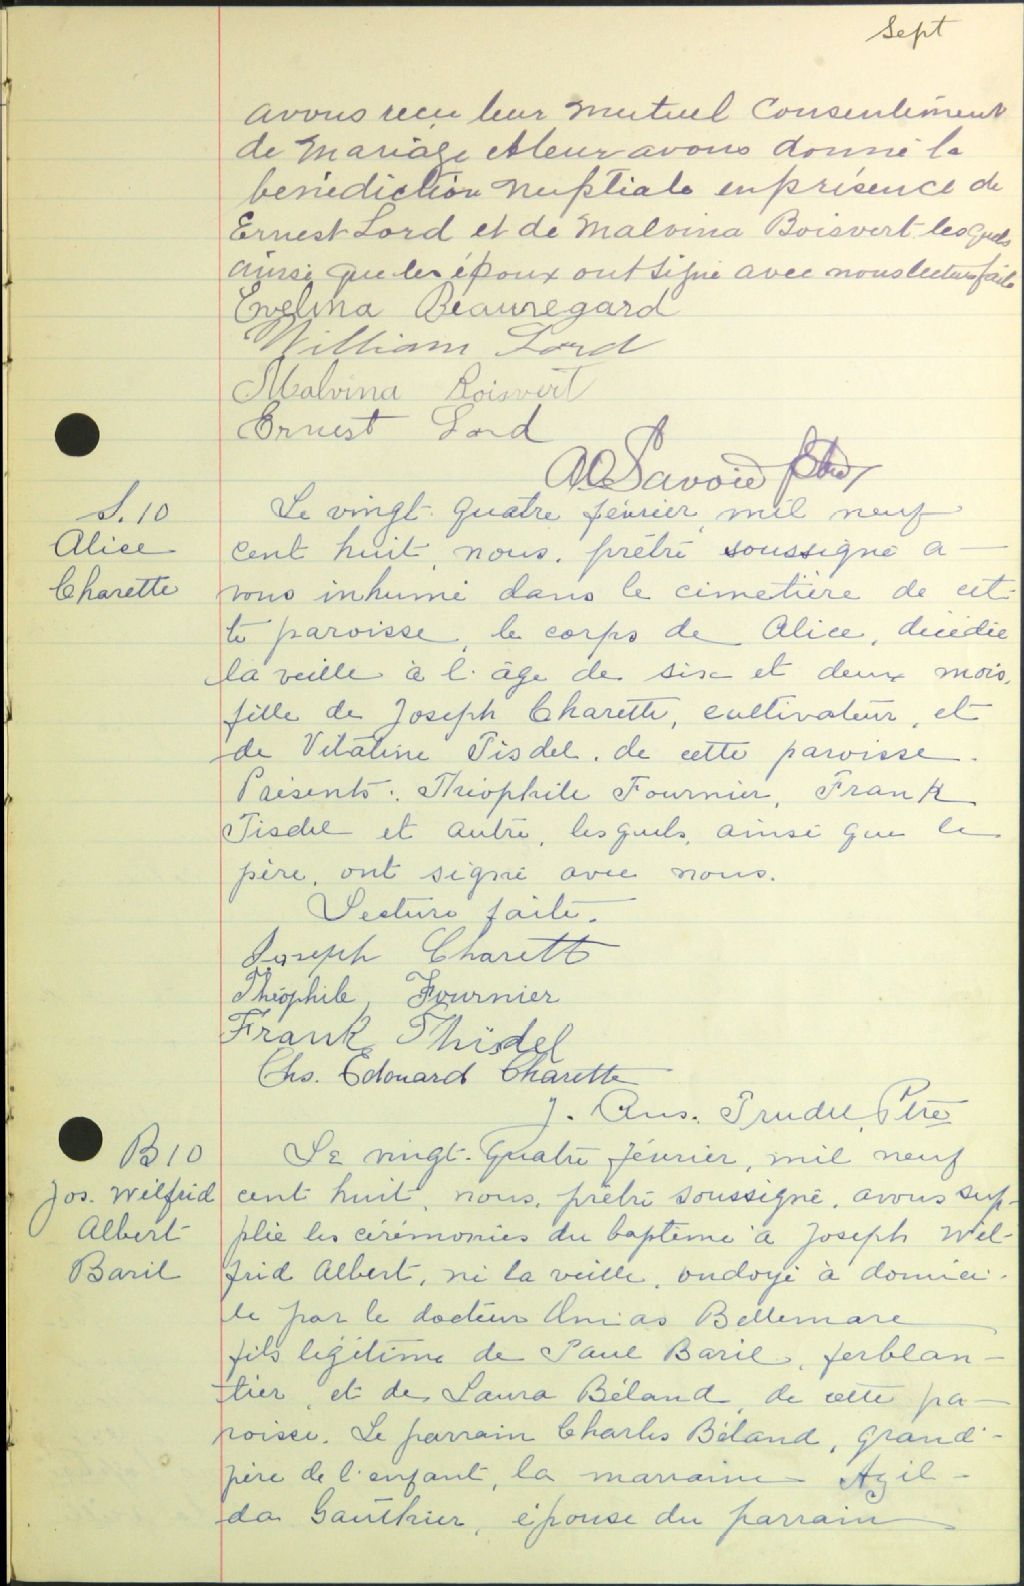 Sept
avons reçu leur mutuel Consentement
de Mariage et leur avons donné la
bénédiction Nuptiale en présence de
Ernest Lord et de Malvina Boisvert lesquels
ainsi que les époux ont signé avec nous lecture faite
Evelina Beauregard
William Lord
Malvina Boisvert
Ernest Lord
Savoie ptre
S. 10
Alice
Charette
Le vingt. quatre février, mil neuf
cent huit, nous, prêtre soussigné a-
vons inhumé dans le cimetière de cet-
te paroisse, le corps de Alice, décédée
la veille à l'âge de six et deux mois,
fille de Joseph Charette, cultivateur, et
de Vitaline Tisdel. de cette paroisse.
Présents: Théophile Fournier, Frank
Tisdel et autre, lesquels, ainsi que le
père, ont signé avec nous.
Lecture faite.
Joseph Charett
Théophile Fournier
Frank Thisdel
Chs. Edouard Charette
J. Ans. Trudel, Ptre
B 10
Jos. Wilfrid
Albert
Baril
Le vingt. quatre février, mil neuf
cent huit, nous, prêtre soussigné, avons sup-
plié les cérémonies du baptême à Joseph Wil-
frid Albert, né la veille, ondoyé à domici-
le par le docteur Bellemare
fils légitime de Paul Baril, ferblan-
tier, et de Laura Béland, de cette pa-
roisse. Le parrain Charles Béland, grand'-
père de l'enfant, la marraine Azil-
da Gauthier, épouse du parrain